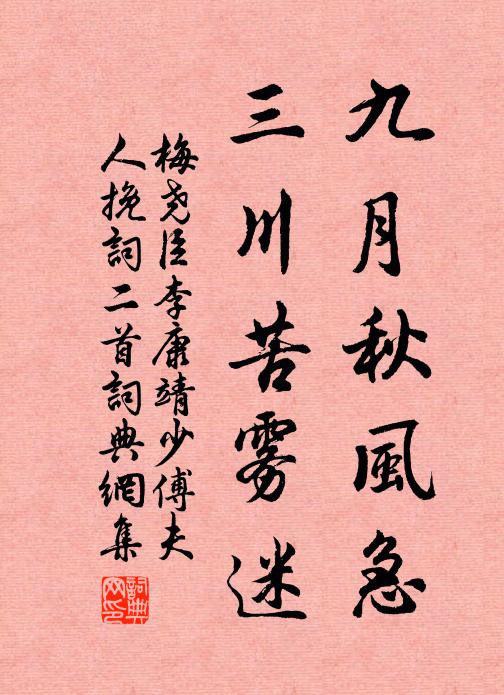 九月秋風急
三川苦雾迷
梅尧臣李康靖少傅夫
人挽詞二首詞典網集
詞典
网印